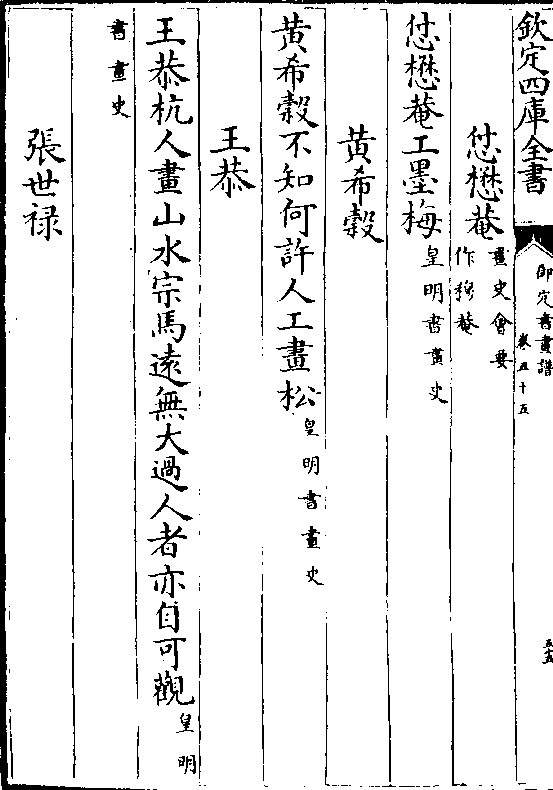 欽定四庫全書
御定書畫譜
卷五十五
五十五
怤懋菴
畫史會要
作穆菴
怤懋菴工墨梅
皇明書畫史
黃希穀
黃希穀不知何許人工畫松
皇明書畫史
王恭
王恭杭人畫山水宗馬遠無大過人者亦自可觀
皇明
書畫史
張世祿